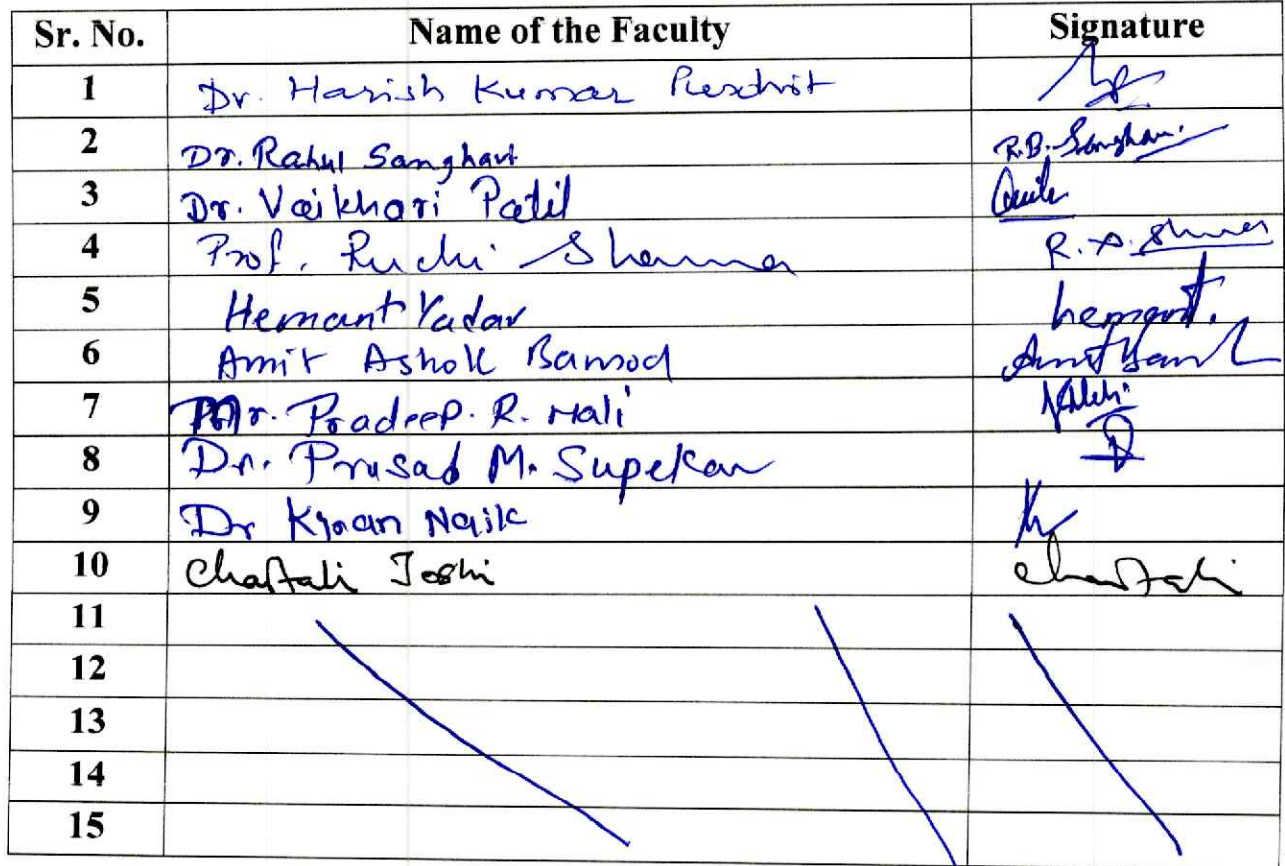 Sr. No. Name of the Faculty Signature
1 Dr. Harish Kumar
2 Dr. Rahul Sanghavi R.B. Sanghavi
3 Dr. Vaikhari Patil
4 Prof. Ruchi Sharma
5 Hemant Yadav hemant.
6 Amit Ashok Bansod
7 Mr. Pradeep. R. Mali
8 Dr. Prasad M. Supekar
9 Dr Kiran Naik
10 Chaitali Joshi Chaitali
11
12
13
14
15